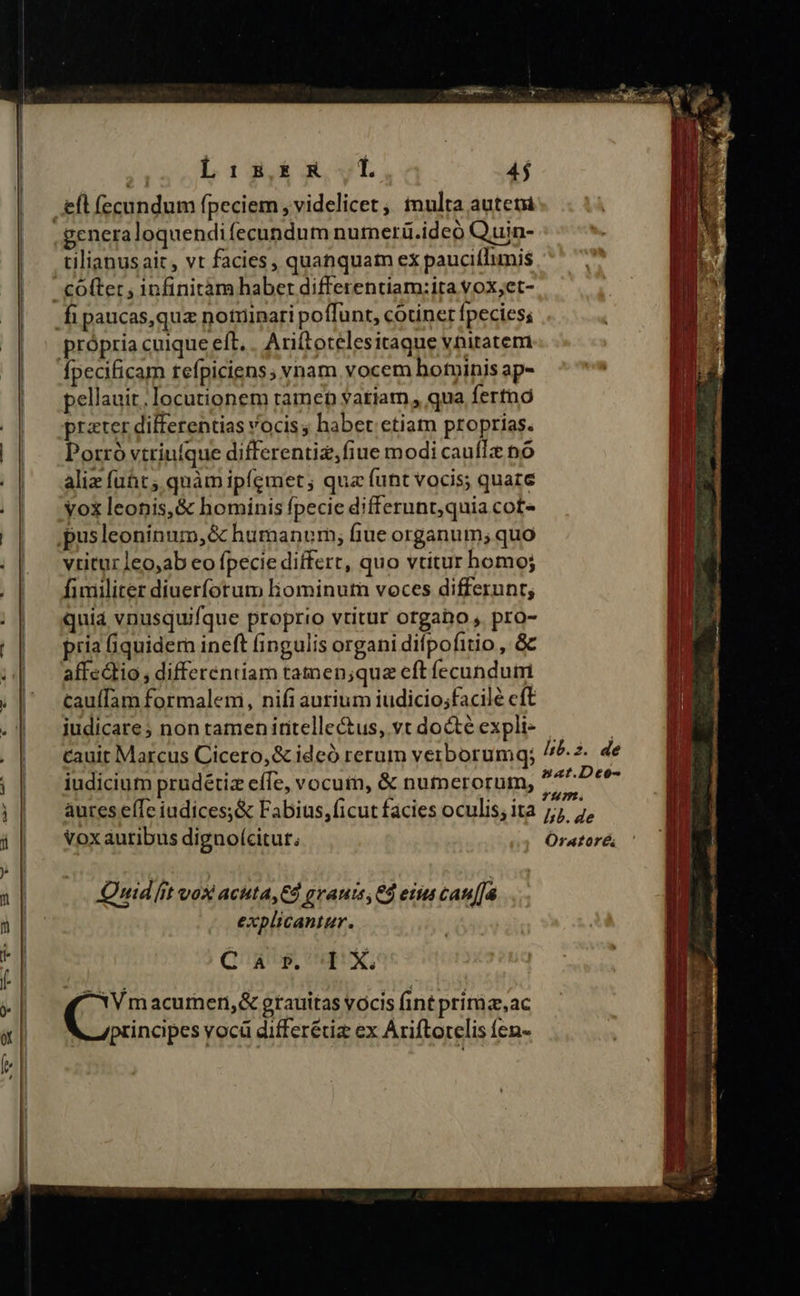 LIBER I. 45
est secundum speciem, videlicet, multa autem
genera loquendi secundum numerū. ideò Quin-
tilianus ait, vt facies, quanquam ex paucissimis
cōstet, infinitam habet differentiam: ita vox, et-
si paucas, quæ nominari possunt, cōtinet species,
propria cuique est. Aristoteles itaque vnitatem
specificam respiciens, vnam vocem hominis ap-
pellauit. locutionem tamen variam, qua sermo
præter differentias vocis, habet etiam proprias.
Porrò vtriusque differentiæ, siue modi caussæ nō
aliæ sunt, quàm ipsęmet, quæ sunt vocis; quare
vox leonis, & hominis specie differunt, quia cor-
pus leoninum, & humanum, siue organum, quo
vtitur leo, ab eo specie differt, quo vtitur homo;
similiter diuersorum hominum voces differunt,
quia vnusquisque proprio vtitur organo, pro-
pria siquidem inest singulis organi dispositio, &
affectio, differentiam tamen, quæ est secundum
caussam formalem, nisi aurium iudicio, facilè est
iudicare; non tamen intellectus, vt doctè expli-
cauit Marcus Cicero, & ideò rerum verborumq;
iudicium prudētiæ esse, vocum, & numerorum,
aures esse iudices; & Fabius, sicut facies oculis, ita
vox auribus dignoscitur.
lib. 2. de
nat. Deo-
rum.
lib. de
Oratore.
Quid sit vox acuta, & grauis, & eius caussæ
explicantur.
CAP. IX.
CVm acumen, & grauitas vocis sint primæ, ac
principes vocū differētiæ ex Aristotelis sen-